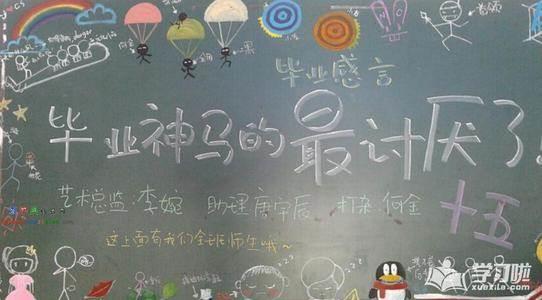 毕业感言
毕业神马的最讨厌了!
艺术总监:李婉 助理唐宇辰 打杂:何金
十五
这上面有我们全班师生哦~
学习啦
xuexila.com